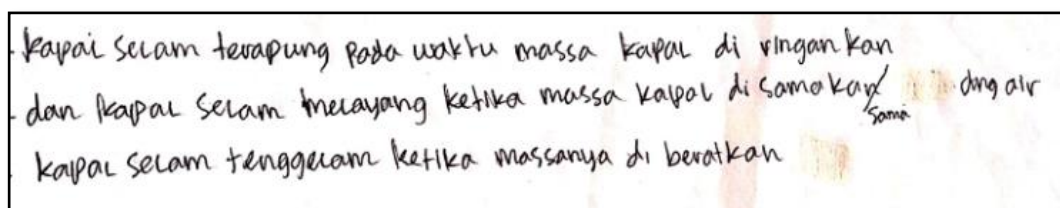 - kapal selam terapung pada waktu massa kapal di ringankan
- dan kapal selam melayang ketika massa kapal di samakan/sama dng air
- kapal selam tenggelam ketika massanya di beratkan